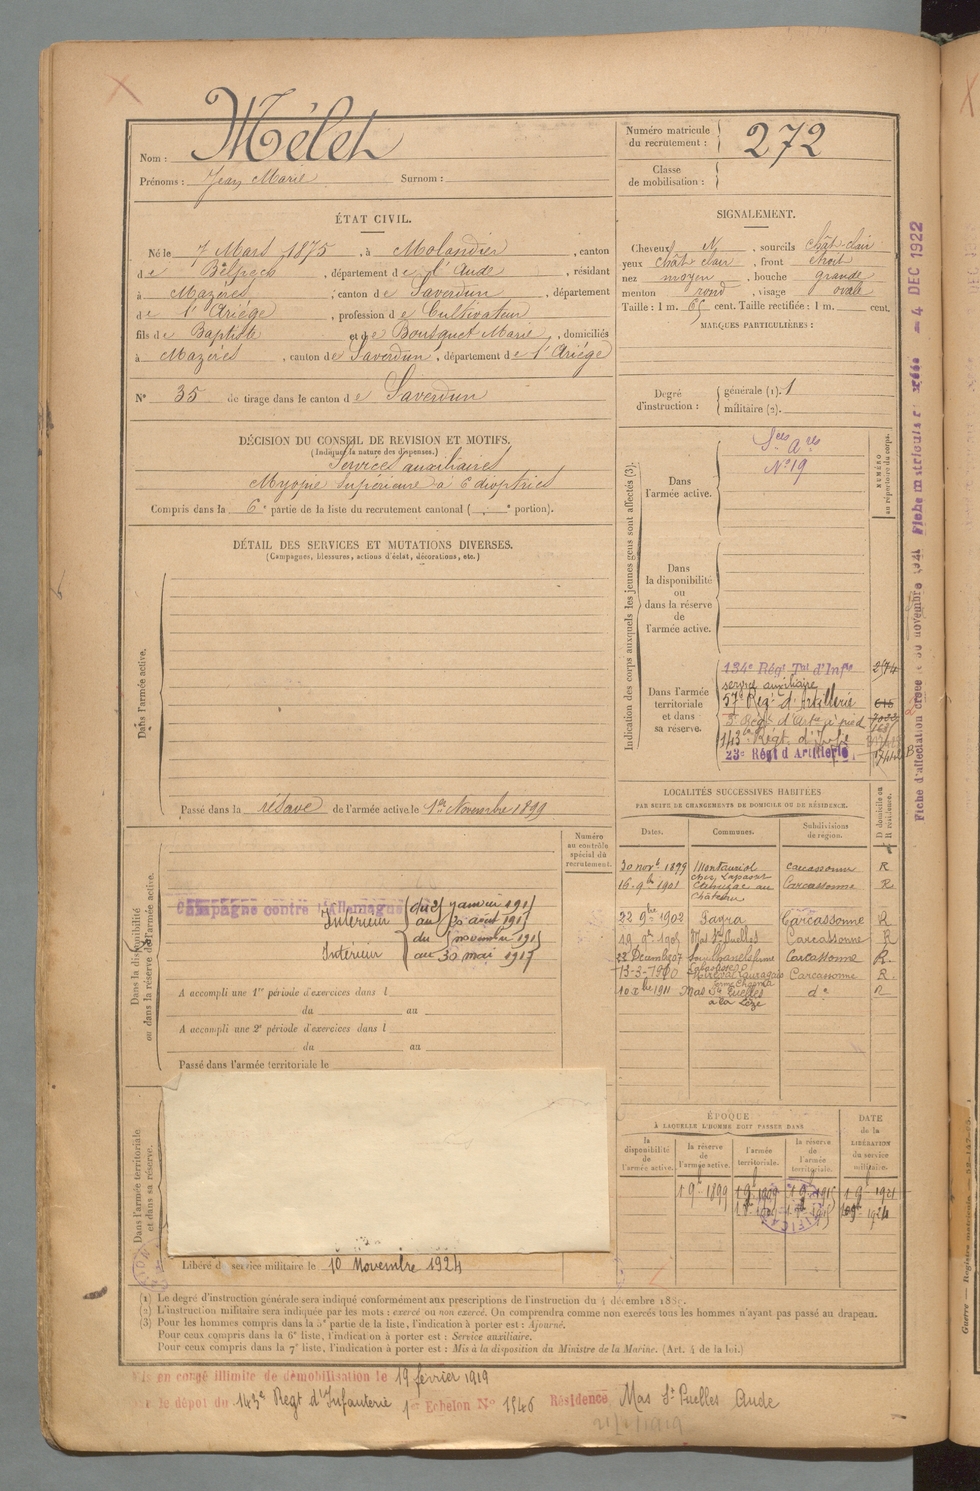 Mélet
Nom :
Prénoms : Jean Marie Surnom :
Numéro matricule du recrutement : 272
Classe de mobilisation :
ÉTAT CIVIL.
Né le 7 Mars 1875, à Molandier, canton
de Belpech, département de l'Aude, résidant
à Mazères, canton de Saverdun, département
de l'Ariége, profession de Cultivateur
fils de Baptiste et de Bousquet Marie, domiciliés
à Mazères, canton de Saverdun, département de l'Ariége
N° 35 de tirage dans le canton de Saverdun
SIGNALEMENT.
Cheveux N, sourcils chât-clair
yeux chât clair, front étroit
nez moyen, bouche grande
menton rond, visage ovale
Taille : 1 m. 65 cent. Taille rectifiée : 1 m. cent.
MARQUES PARTICULIÈRES :
Degré d'instruction : générale (1). 1
militaire (2).
DÉCISION DU CONSEIL DE REVISION ET MOTIFS.
(Indiquer la nature des dispenses.)
Services auxiliaires
Myopie supérieure à 6 dioptries
Compris dans la 6e partie de la liste du recrutement cantonal ( e portion).
DÉTAIL DES SERVICES ET MUTATIONS DIVERSES.
(Campagnes, blessures, actions d'éclat, décorations, etc.)
Dans l'armée active.
Passé dans la réserve de l'armée active le 1er Novembre 1899
Indication des corps auxquels les jeunes gens sont affectés (3).
NUMÉRO au répertoire du corps.
Dans l'armée active.
Sces Ares
N° 19
Dans la disponibilité ou dans la réserve de l'armée active.
Dans l'armée territoriale et dans sa réserve.
134e Régt Tal d'Infie
service auxiliaire
57e Régt d'Artillerie
3e Régt d'Artie à pied
143e Régt d'Infie
23e Régt d'Artillerie.
LOCALITÉS SUCCESSIVES HABITÉES
PAR SUITE DE CHANGEMENTS DE DOMICILE OU DE RÉSIDENCE.
Dates. Communes. Subdivisions de région. D domicile ou R résidence.
20 novre 1899 Montauriol Carcassonne R
16. 9bre 1901 Carcassonne R
22 9bre 1902 Payra Carcassonne R
19 9bre 1905 Mas Stes Puelles Carcassonne R
22 Décembre 07 Carcassonne R
13-3-1910 Carcassonne R
10 Xbre 1911 Mas Stes Puelles de R
à la Lèze
Dans la disponibilité ou dans la réserve de l'armée active.
Numéro au contrôle spécial du recrutement.
Campagne contre l'Allemagne
Intérieur du janvier 1915
au 30 août 1915
Intérieur du novembre 1915
au 30 mai 1917
A accompli une 1re période d'exercices dans l
du au
A accompli une 2e période d'exercices dans l
du au
Passé dans l'armée territoriale le
Dans l'armée territoriale et dans sa réserve.
ÉPOQUE
À LAQUELLE L'HOMME DOIT PASSER DANS
la disponibilité de l'armée active. la réserve de l'armée active. l'armée territoriale. la réserve de l'armée territoriale.
DATE de la LIBÉRATION du service militaire.
Libéré du service militaire le 10 Novembre 1924
(1) Le degré d'instruction générale sera indiqué conformément aux prescriptions de l'instruction du 4 décembre
(2) L'instruction militaire sera indiquée par les mots : exercé ou non exercé. On comprendra comme non exercés tous les hommes n'ayant pas passé au drapeau.
(3) Pour les hommes compris dans la 5e partie de la liste, l'indication à porter est : Ajourné.
Pour ceux compris dans la 6e liste, l'indication à porter est : Service auxiliaire.
Pour ceux compris dans la 7e liste, l'indication à porter est : Mis à la disposition du Ministre de la Marine. (Art. 4 de la loi.)
en congé illimité de démobilisation le 19 février 1919
le dépôt du 143e Régt d'Infanterie 1er Echelon N° 1546 Résidence Mas St Puelles Aude
4 DEC 1922